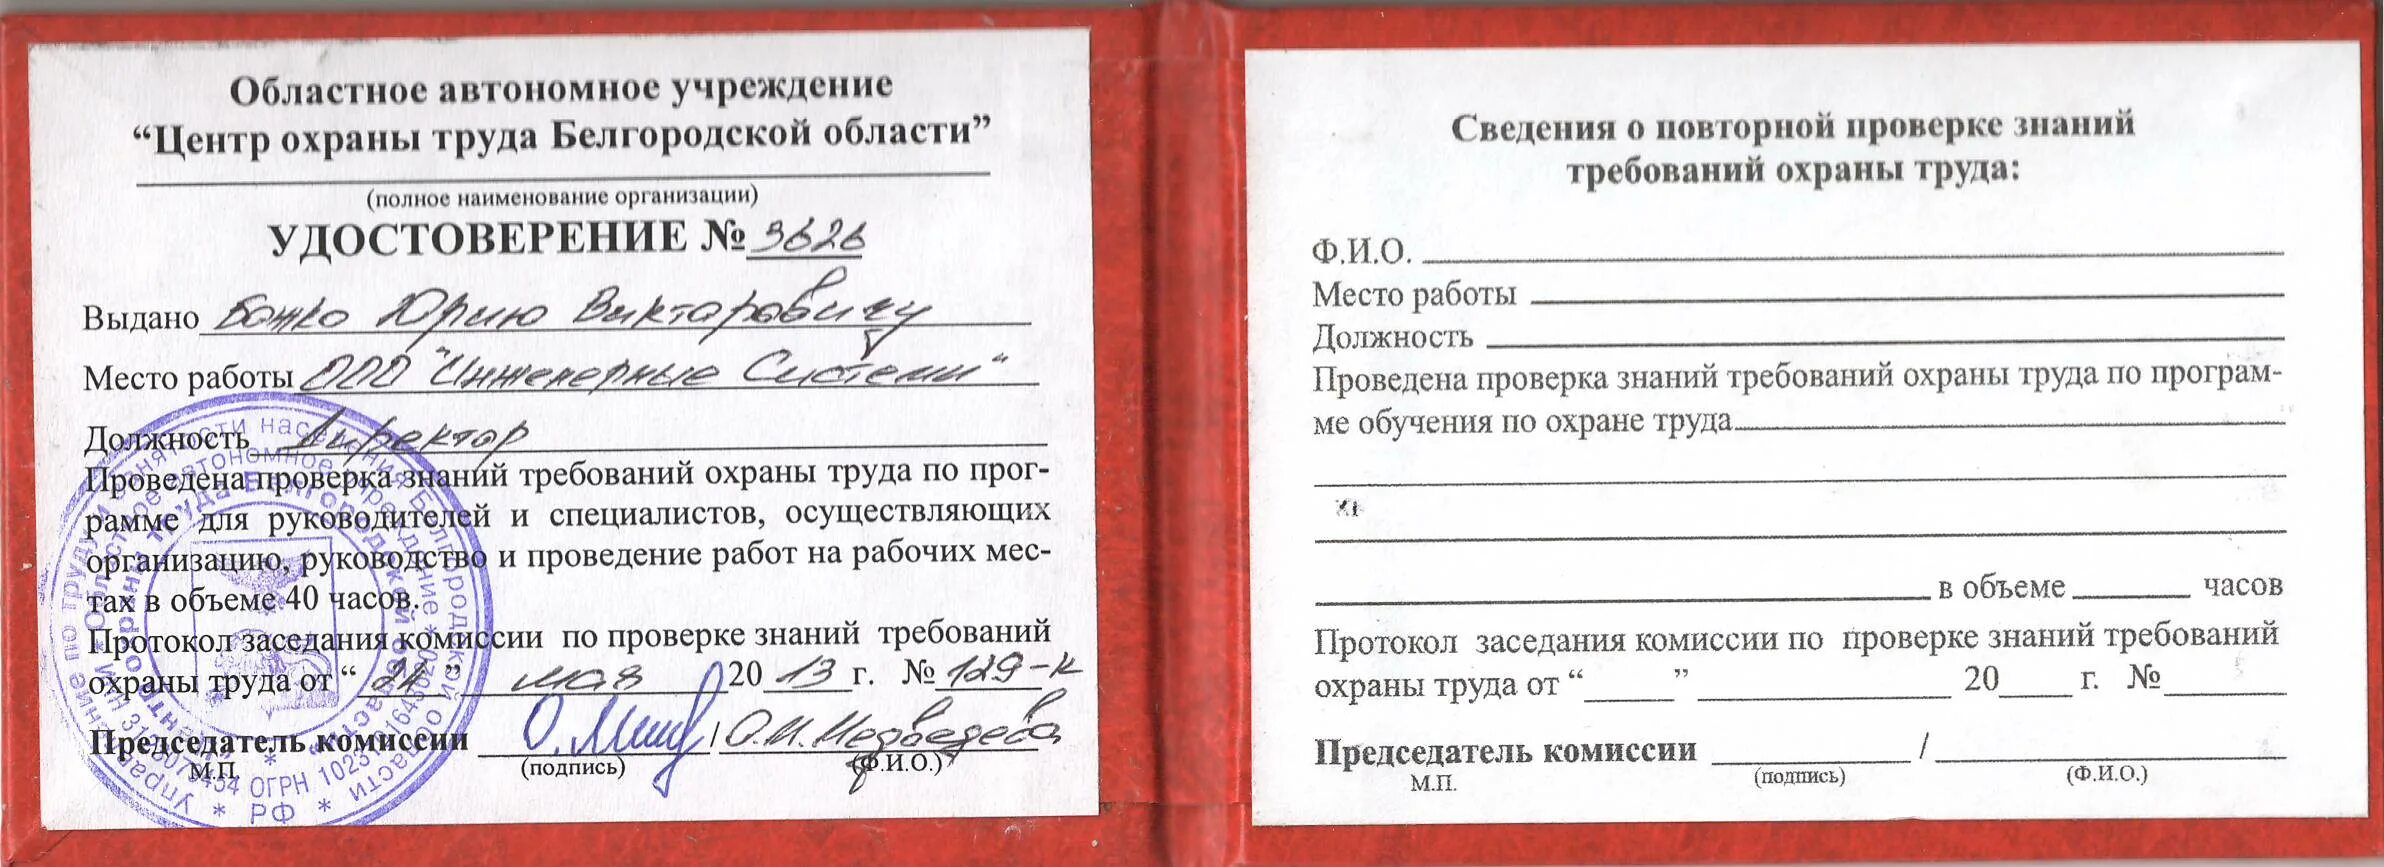 Областное автономное учреждение
“Центр охраны труда Белгородской области”
(полное наименование организации)
УДОСТОВЕРЕНИЕ № 3626
Выдано Божко Юрию Викторовичу
Место работы ООО "Инженерные Системы"
Должность Директор
Проведена проверка знаний требований охраны труда по прог-
рамме для руководителей и специалистов, осуществляющих
организацию, руководство и проведение работ на рабочих мес-
тах в объеме 40 часов.
Протокол заседания комиссии по проверке знаний требований
охраны труда от “ ” мая 20 13 г. № 129-к
Председатель комиссии / О.И. Медведева
М.П. (подпись) (Ф.И.О.)
Сведения о повторной проверке знаний
требований охраны труда:
Ф.И.О.
Место работы
Должность
Проведена проверка знаний требований охраны труда по програм-
ме обучения по охране труда
в объеме часов
Протокол заседания комиссии по проверке знаний требований
охраны труда от “ ” 20 г. №
Председатель комиссии /
М.П. (подпись) (Ф.И.О.)